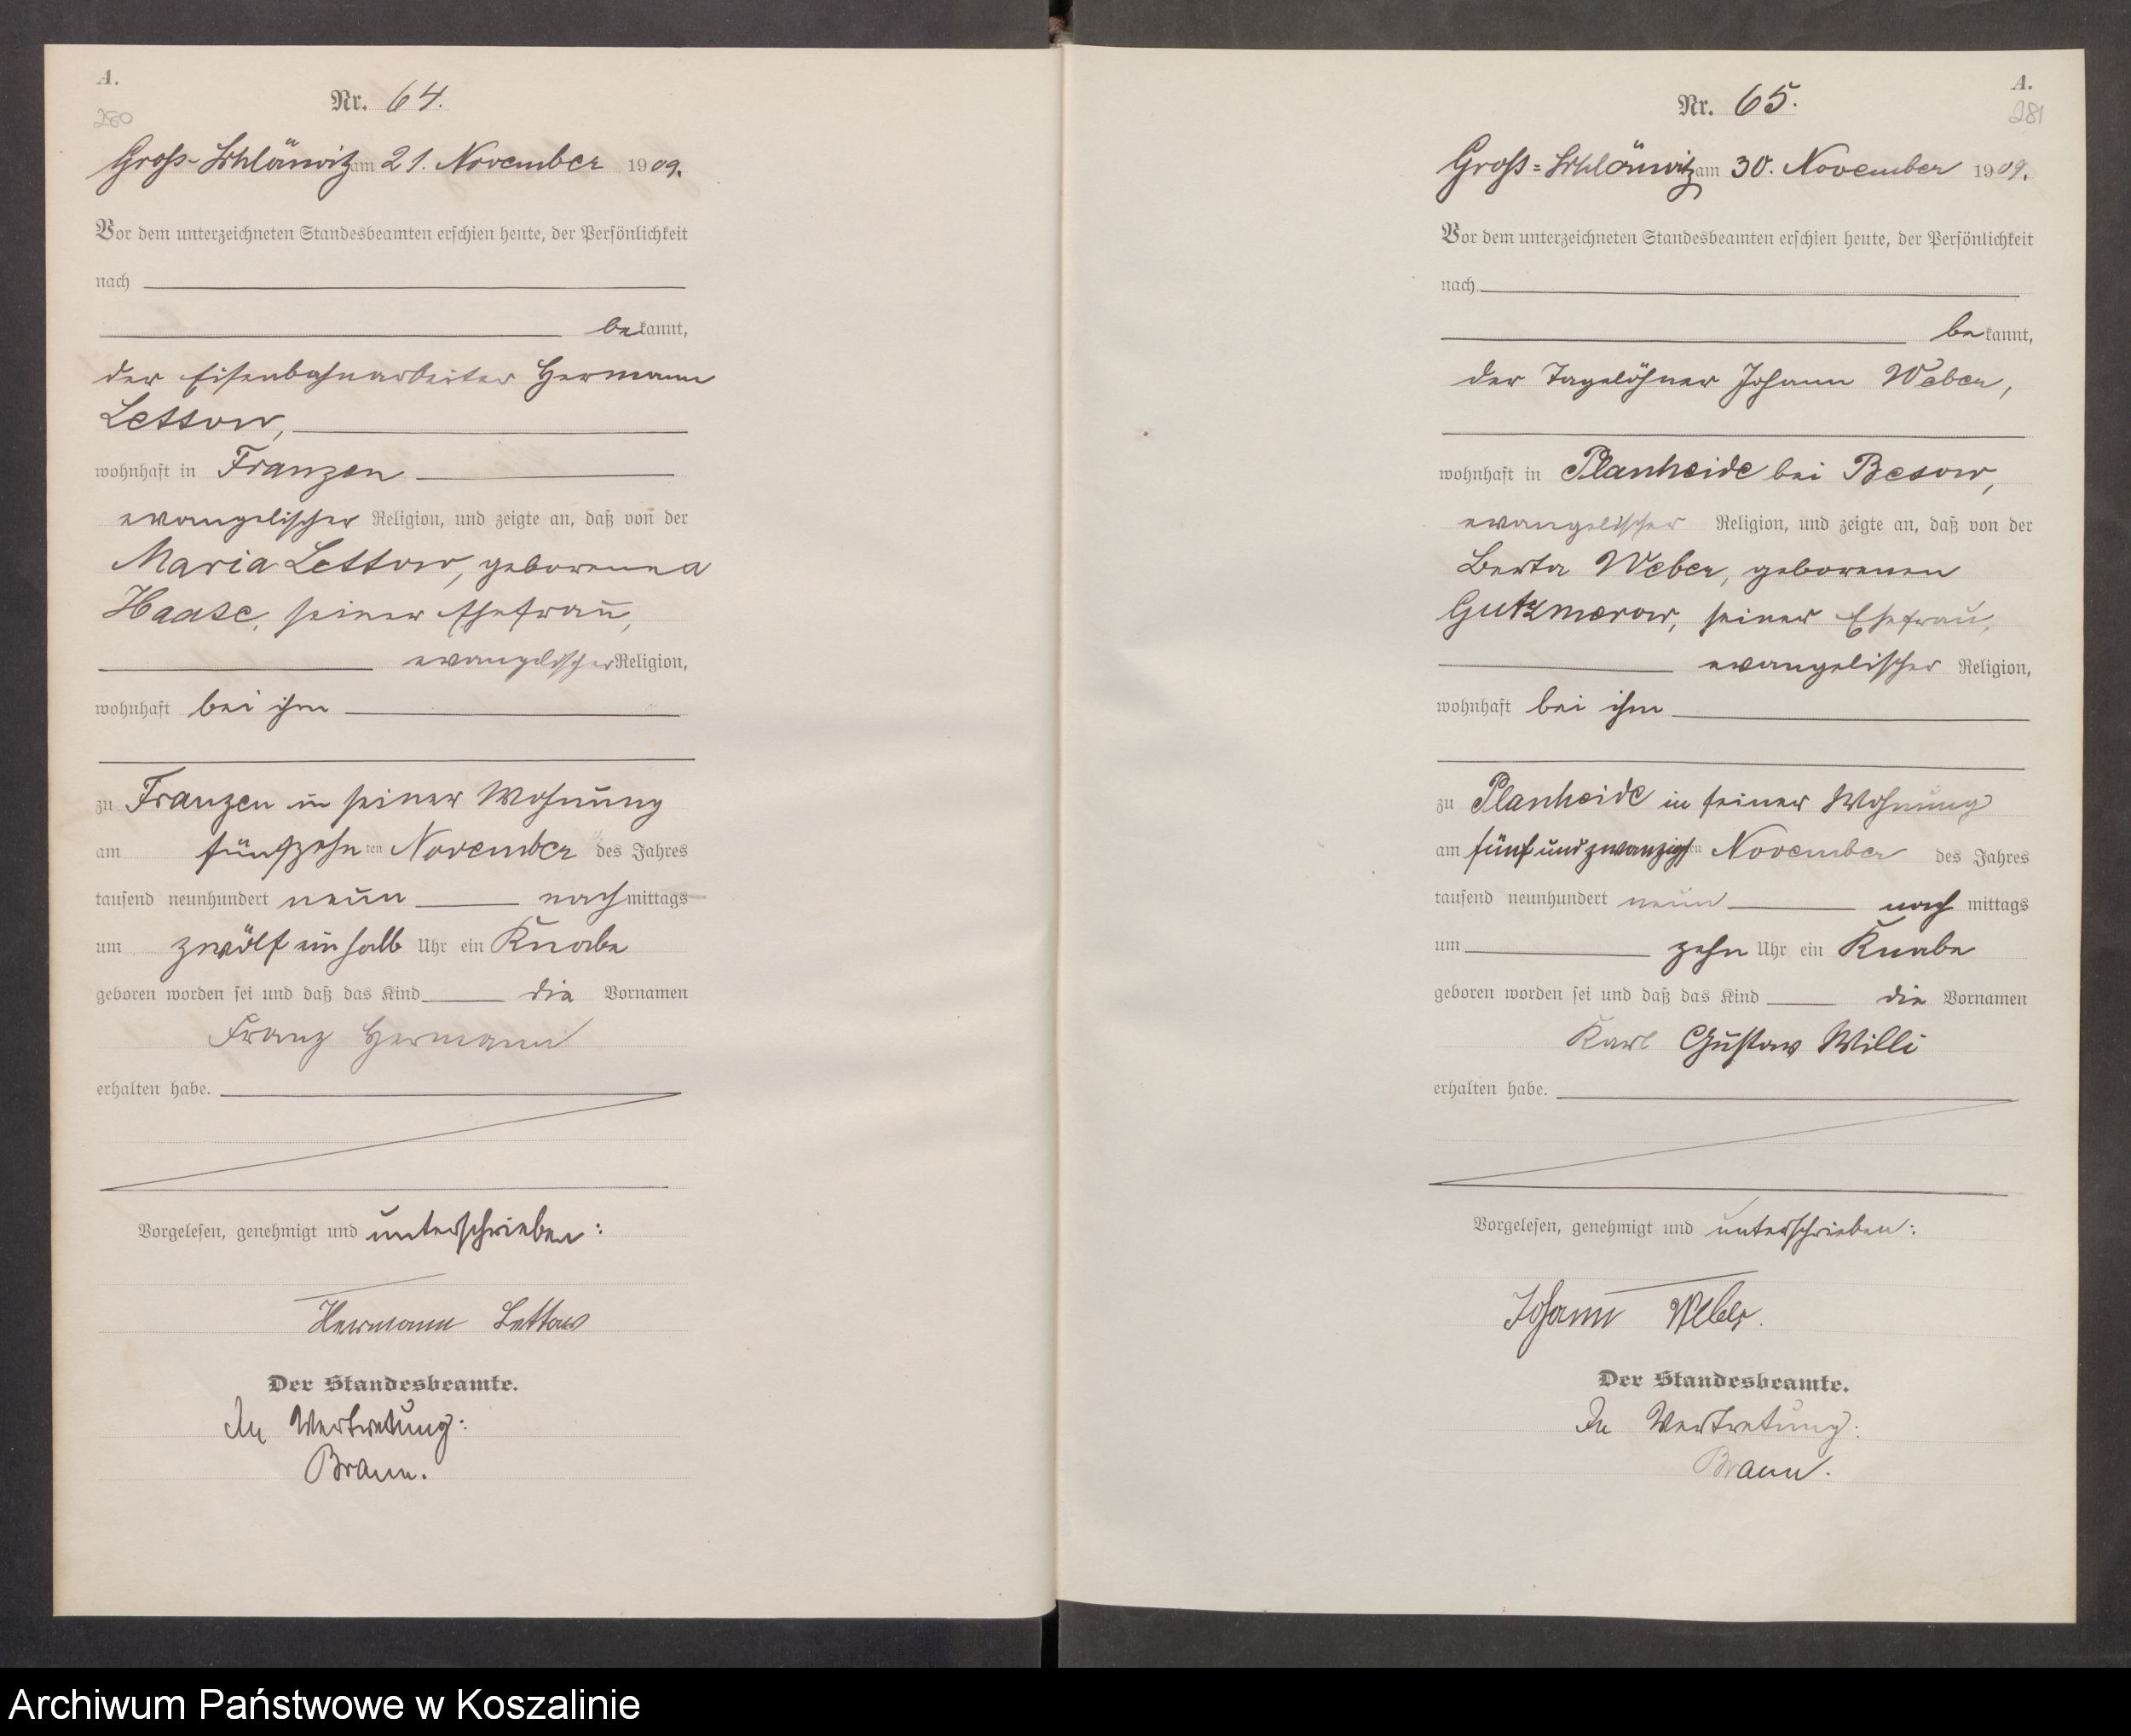 A.
280
Nr. 64.
Gross-Schlönwitz am 21. November 1909.
Vor dem unterzeichneten Standesbeamten erschien heute, der Persönlichkeit
nach
bekannt,
der Eisenbahnarbeiter Hermann
Lettow,
wohnhaft in Franzen
evangelischer Religion, und zeigte an, daß von der
Maria Lettow, geborenen
Haase, seiner Ehefrau,
evangelischer Religion,
wohnhaft bei ihm
zu Franzen in seiner Wohnung
am fünfzehnten November des Jahres
tausend neunhundert neun nachmittags
um zwölf einhalb Uhr ein Knabe
geboren worden sei und daß das Kind die Vornamen
Franz Hermann
erhalten habe.
Vorgelesen, genehmigt und unterschrieben:
Hermann Lettow
Der Standesbeamte.
In Vertretung:
Braun.
A.
281
Nr. 65.
Gross=Schlönwitz am 30. November 1909.
Vor dem unterzeichneten Standesbeamten erschien heute, der Persönlichkeit
nach
bekannt,
der Tagelöhner Johann Weber,
wohnhaft in Planheide bei Besow,
evangelischer Religion, und zeigte an, daß von der
Berta Weber, geborenen
Gutzmerow, seiner Ehefrau,
evangelischer Religion,
wohnhaft bei ihm
zu Planheide in seiner Wohnung
am fünfundzwanzigsten November des Jahres
tausend neunhundert neun nachmittags
um zehn Uhr ein Knabe
geboren worden sei und daß das Kind die Vornamen
Karl Gustav Willi
erhalten habe.
Vorgelesen, genehmigt und unterschrieben:
Johann Weber.
Der Standesbeamte.
In Vertretung:
Braun.
Archiwum Państwowe w Koszalinie